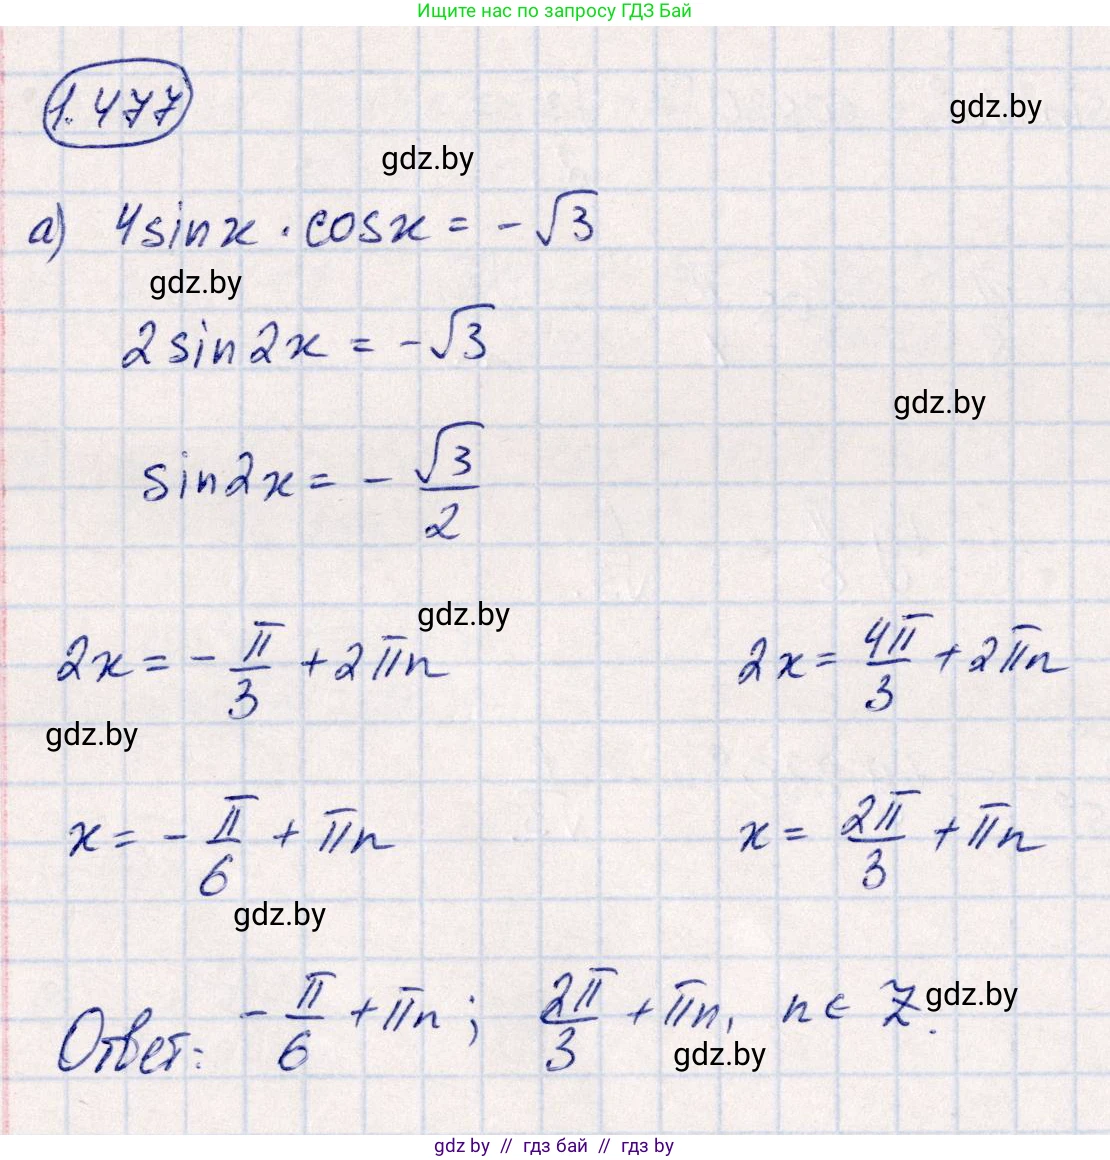 Ищите нас по запросу ГДЗ Бай
1.477
gdz.by
gdz.by
а) 4sinx · cosx = -√3
gdz.by
2sin2x = -√3
gdz.by
sin2x = -√3/2
gdz.by
2x = -π/3 + 2πn    2x = 4π/3 + 2πn
gdz.by
x = -π/6 + πn    x = 2π/3 + πn
gdz.by
Ответ: -π/6 + πn; 2π/3 + πn, n ∈ Z.
gdz.by
gdz.by
gdz.by // гдз бай // гдз by